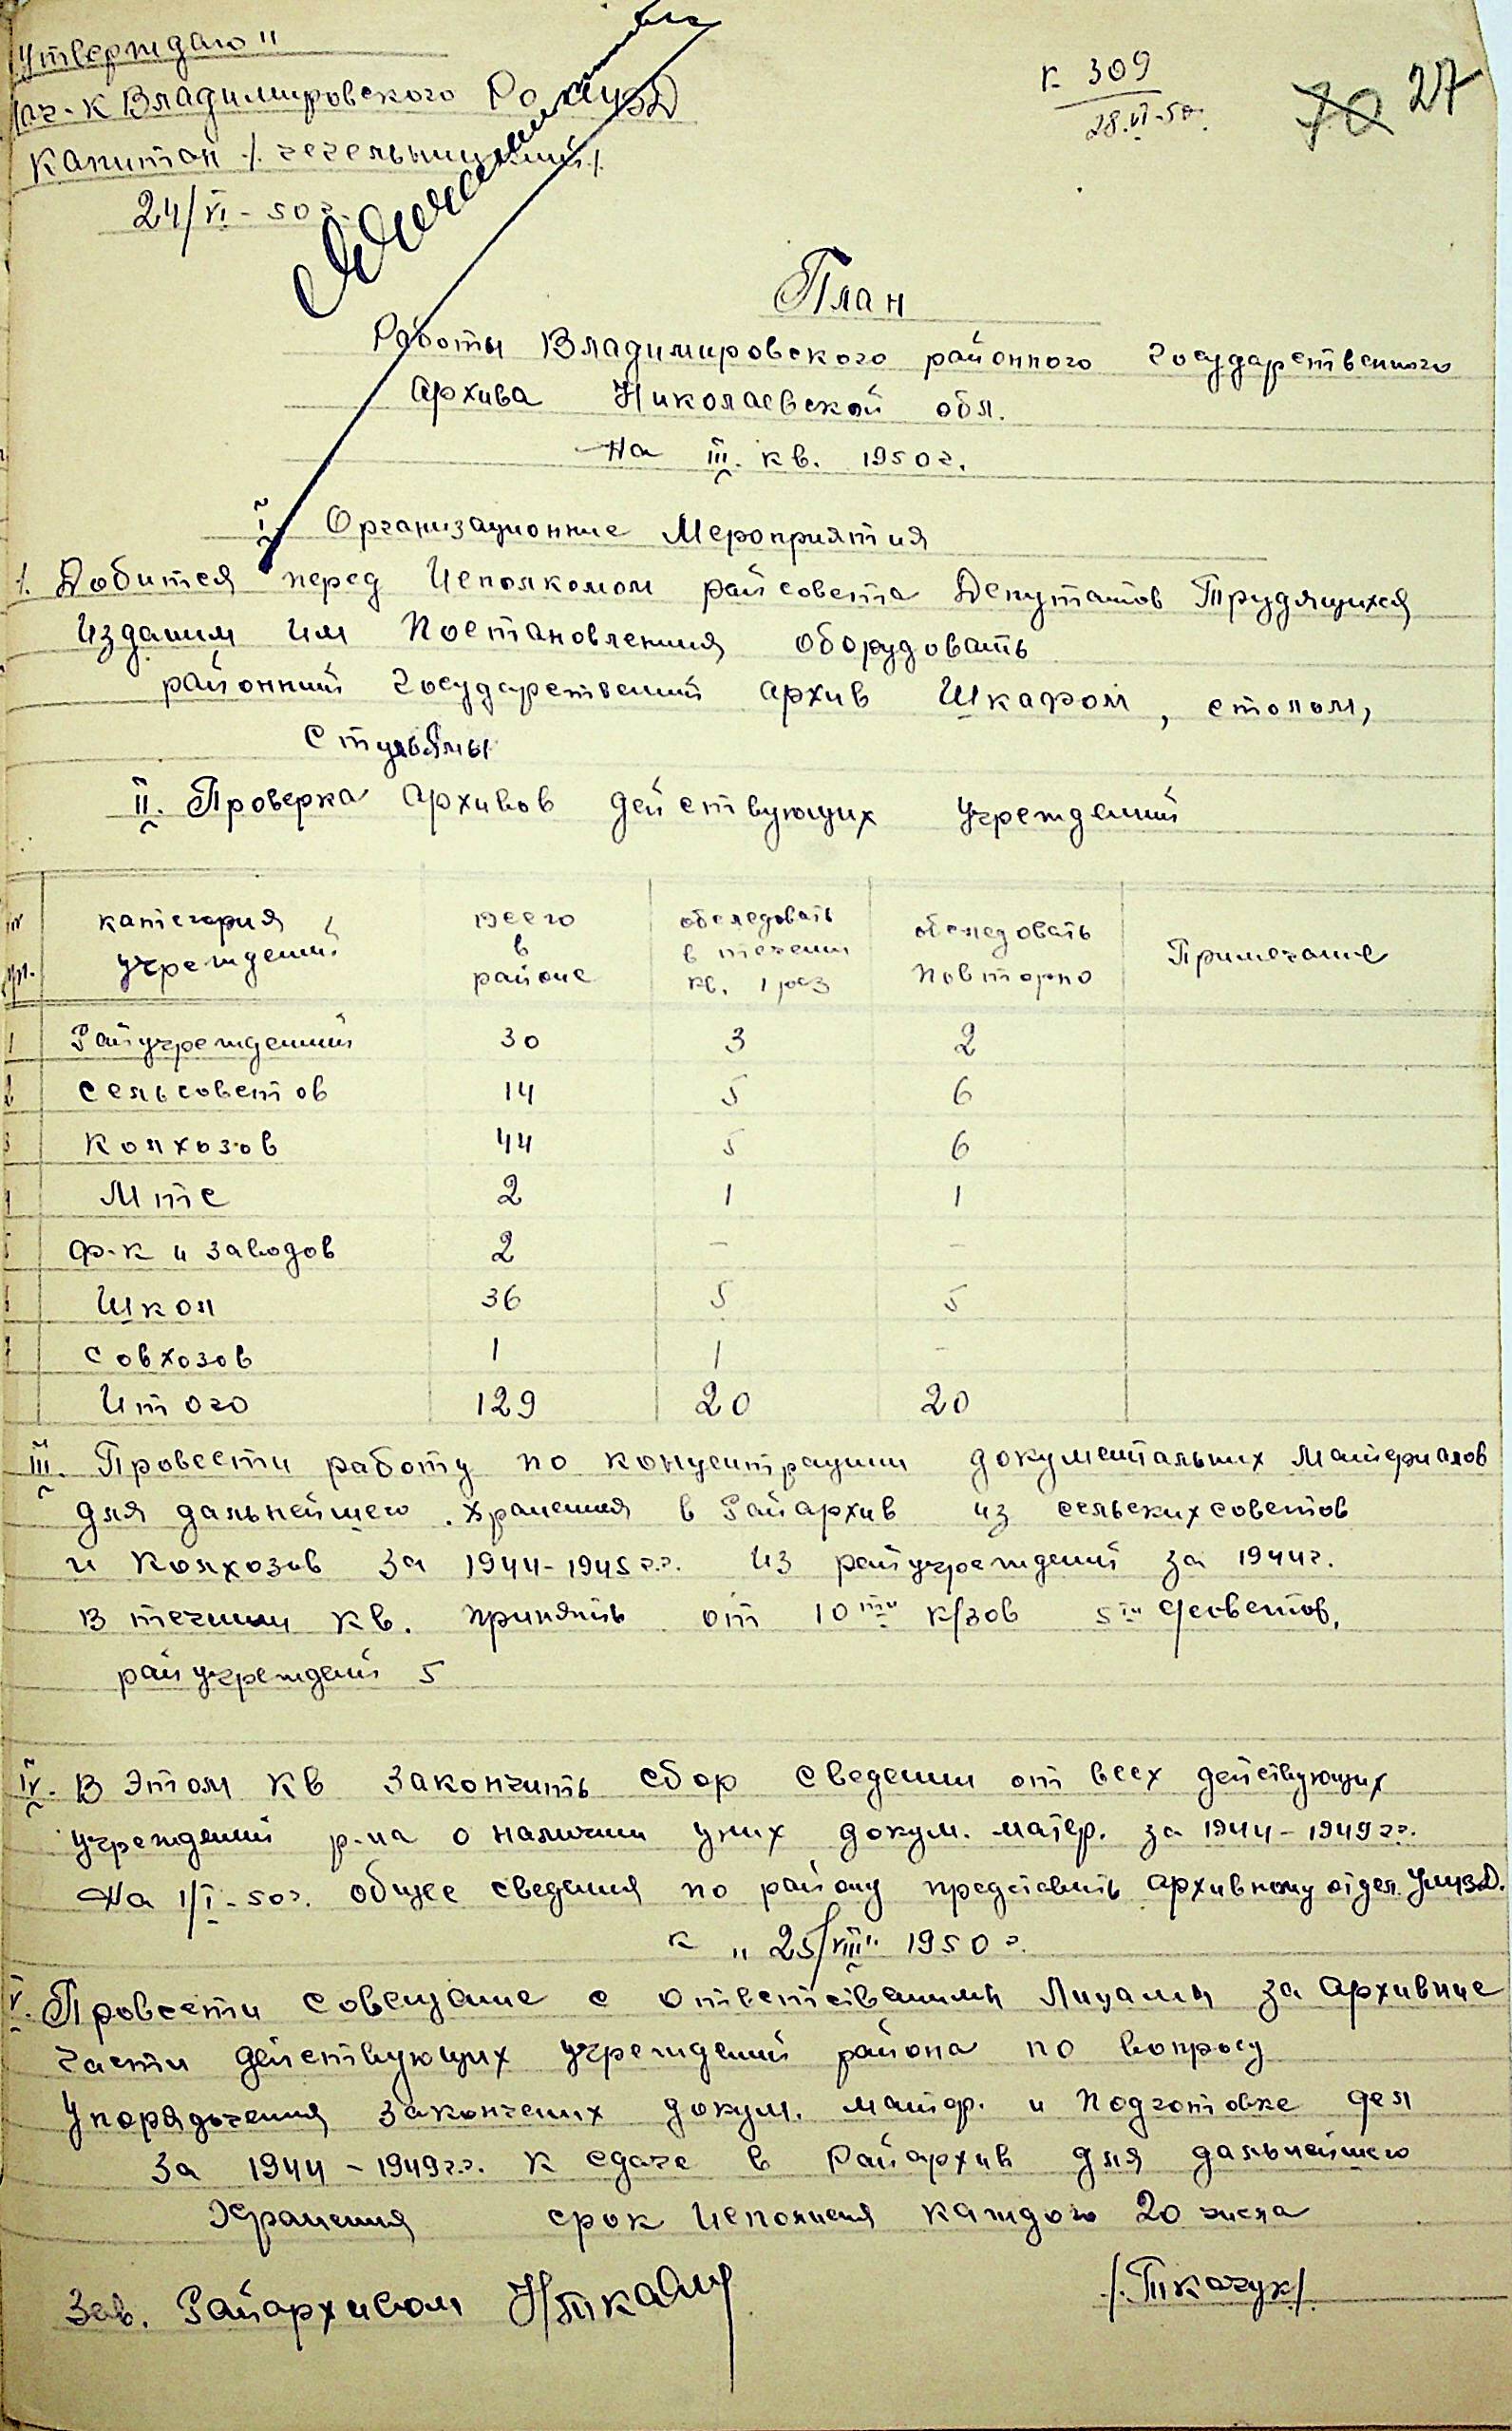 Утверждаю"
Нач-к Владимировского Ро МГБ
Капитан /. Чечельницкий /.
24/VI - 50 г.
К 309
28.VI-50г.
70 27
План
Работы Владимировского районного Государственного
Архива Николаевской обл.
На III. кв. 1950 г.
I. Организационние Мероприятия
1. Добится перед Исполкомом райсовета Депутатов Трудящихся
Изданим им Постановлення оборудовать
районний Государствений архив Шкафом, столом,
Стульямы
II. Проверка Архивов действующих Учреждений
№ пп. категория учреждений всего в районе обследовать в течении кв. 1 раз обследовать повторно Примечание
1 Райучреждений 30 3 2
2 Сельсоветов 14 5 6
3 Колхозов 44 5 6
4 Мтс 2 1 1
5 Ф-к и заводов 2 – –
6 Школ 36 5 5
7 Совхозов 1 1 –
Итого 129 20 20
III. Провести работу по концентрации документальних Материалов
для дальнейшего хранения в Райархив из сельских советов
и Колхозов за 1944-1945 г.г. Из райучреждений за 1944г.
В течении кв. принять от 10ти к/зов 5ти с/советов,
райучреждений 5
IV. В Этом Кв закончить сбор сведении от всех действующих
учреждений р-на о наличии у них докум. матер. за 1944-1949 гг.
На 1/I-50г. общее сведения по району представить архивному отдел. УМВД.
к " 25/VIII" 1950 г.
V. Провести совещание с ответственими Лицами за Архивние
части действующих учреждений района по вопросу
Упорядочения Закончених докум. матер. и Подготовке дел
За 1944-1949 г.г. к сдаче в Райархив для дальнейшего
Хранения срок Исполнения каждого 20 числа
Зав. Райархивом /. Ткачук /.